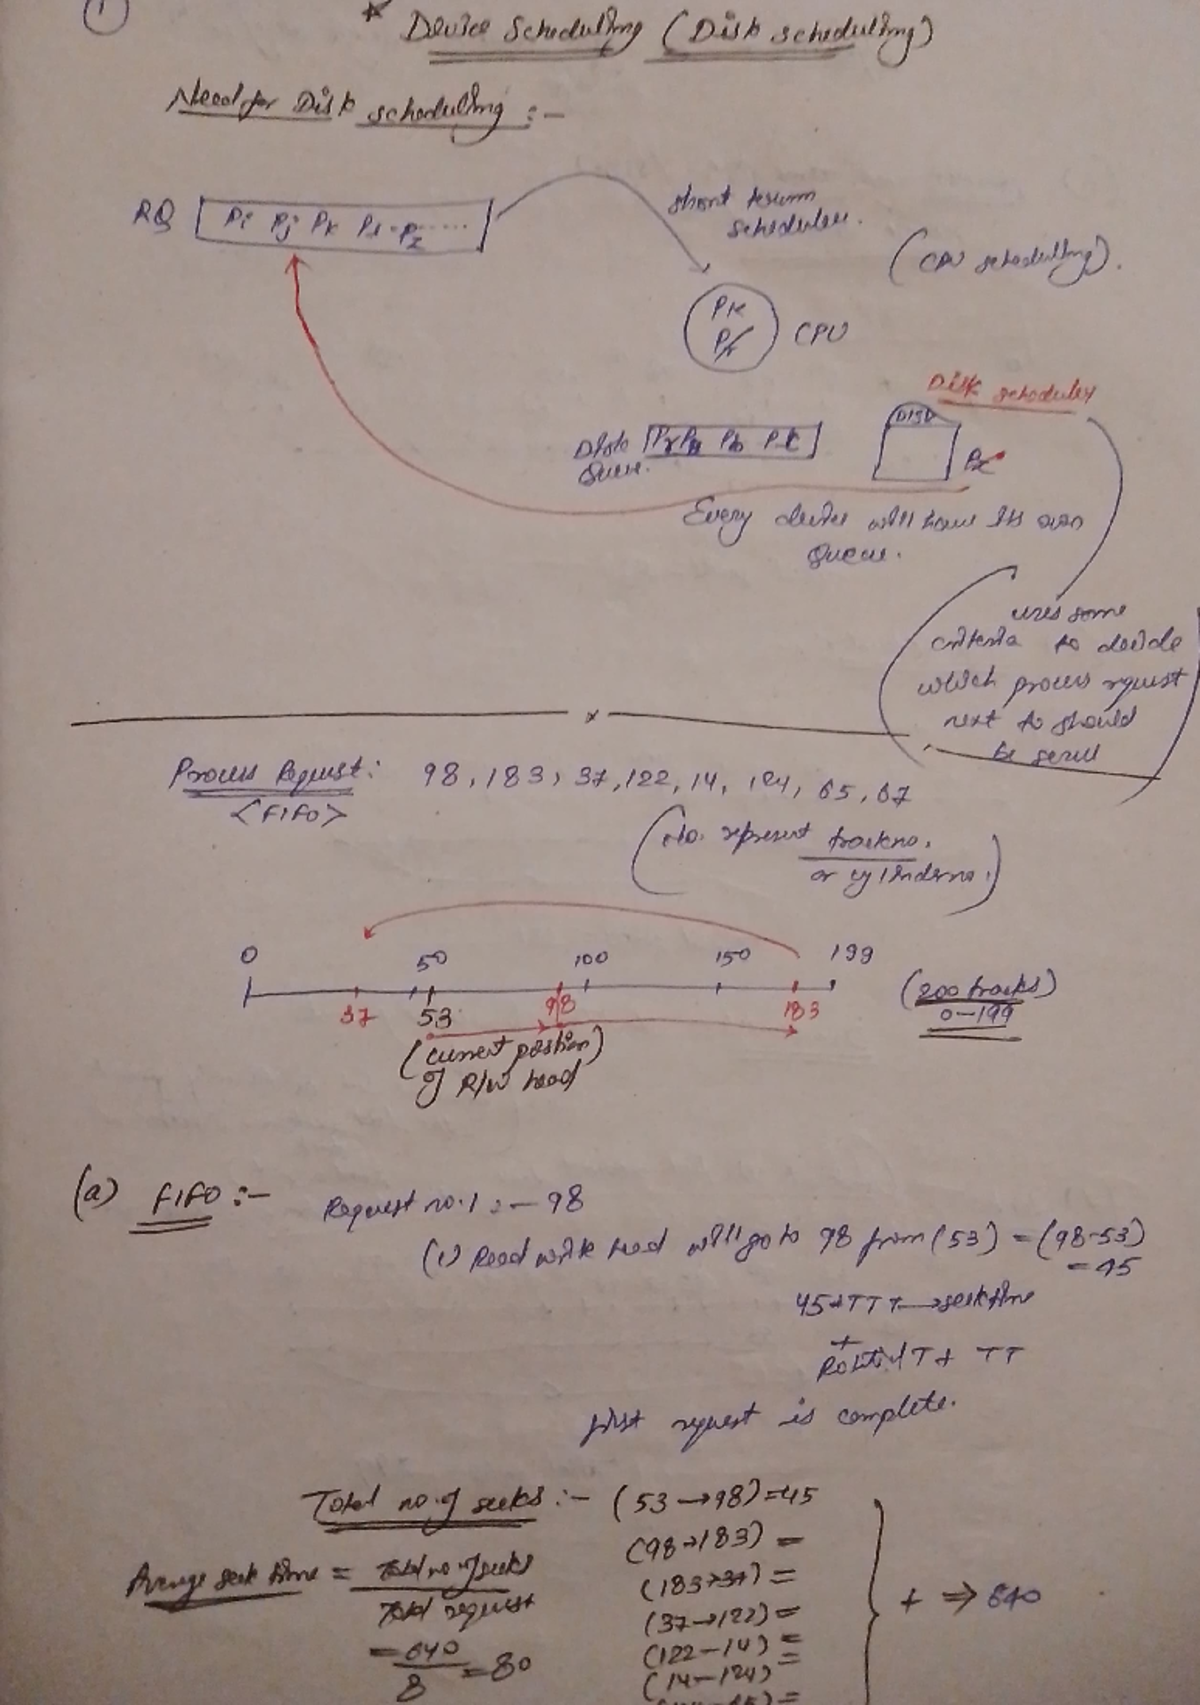 1
* Device Scheduling (Disk scheduling)
Need for Disk scheduling :-
RQ Pi Pj Pk Ps - Pz ......
short term
scheduler.
(CPU scheduling).
Pk
CPU
Disk scheduler
DISD
Queue.
Px
Every device will have its own
Queue.
uses some
criteria to decide
which process request
next to should
be serve
x
Process Request: 98, 183, 37, 122, 14, 124, 65, 67
<FIFO>
(No. represent track no.
or cylinder no.)
0 50 100 150 199
(200 tracks)
0-199
37 53 98 183
(current position)
of R/W head
(a) FIFO :- Request no. 1 :- 98
(1) Read write head will go to 98 from (53) = (98-53)
= 45
45 * TTT → seek time
+
TT
first request is complete.
Total no. of seeks :- (53 → 98) = 45
(98 → 183) =
(183 → 37) =
(37 → 122) =
(122 - 14) =
(14 - 124) =
+ ⇒ 640
Average seek time = Total no of seeks
Total request
= 640
8 = 80